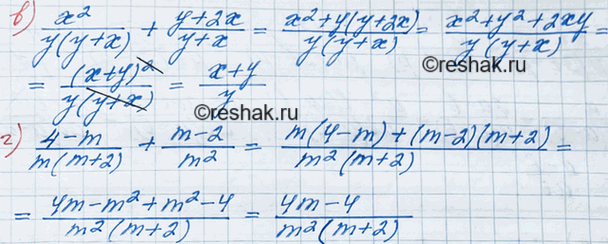 в) x²/(y(y+x)) + (y+2x)/(y+x) = (x²+y(y+2x))/(y(y+x)) = (x²+y²+2xy)/(y(y+x)) =
= (x+y)²/(y(y+x)) = (x+y)/y
©reshak.ru
©reshak.ru
г) (4-m)/(m(m+2)) + (m-2)/m² = (m(4-m)+(m-2)(m+2))/(m²(m+2)) =
= (4m-m²+m²-4)/(m²(m+2)) = (4m-4)/(m²(m+2))